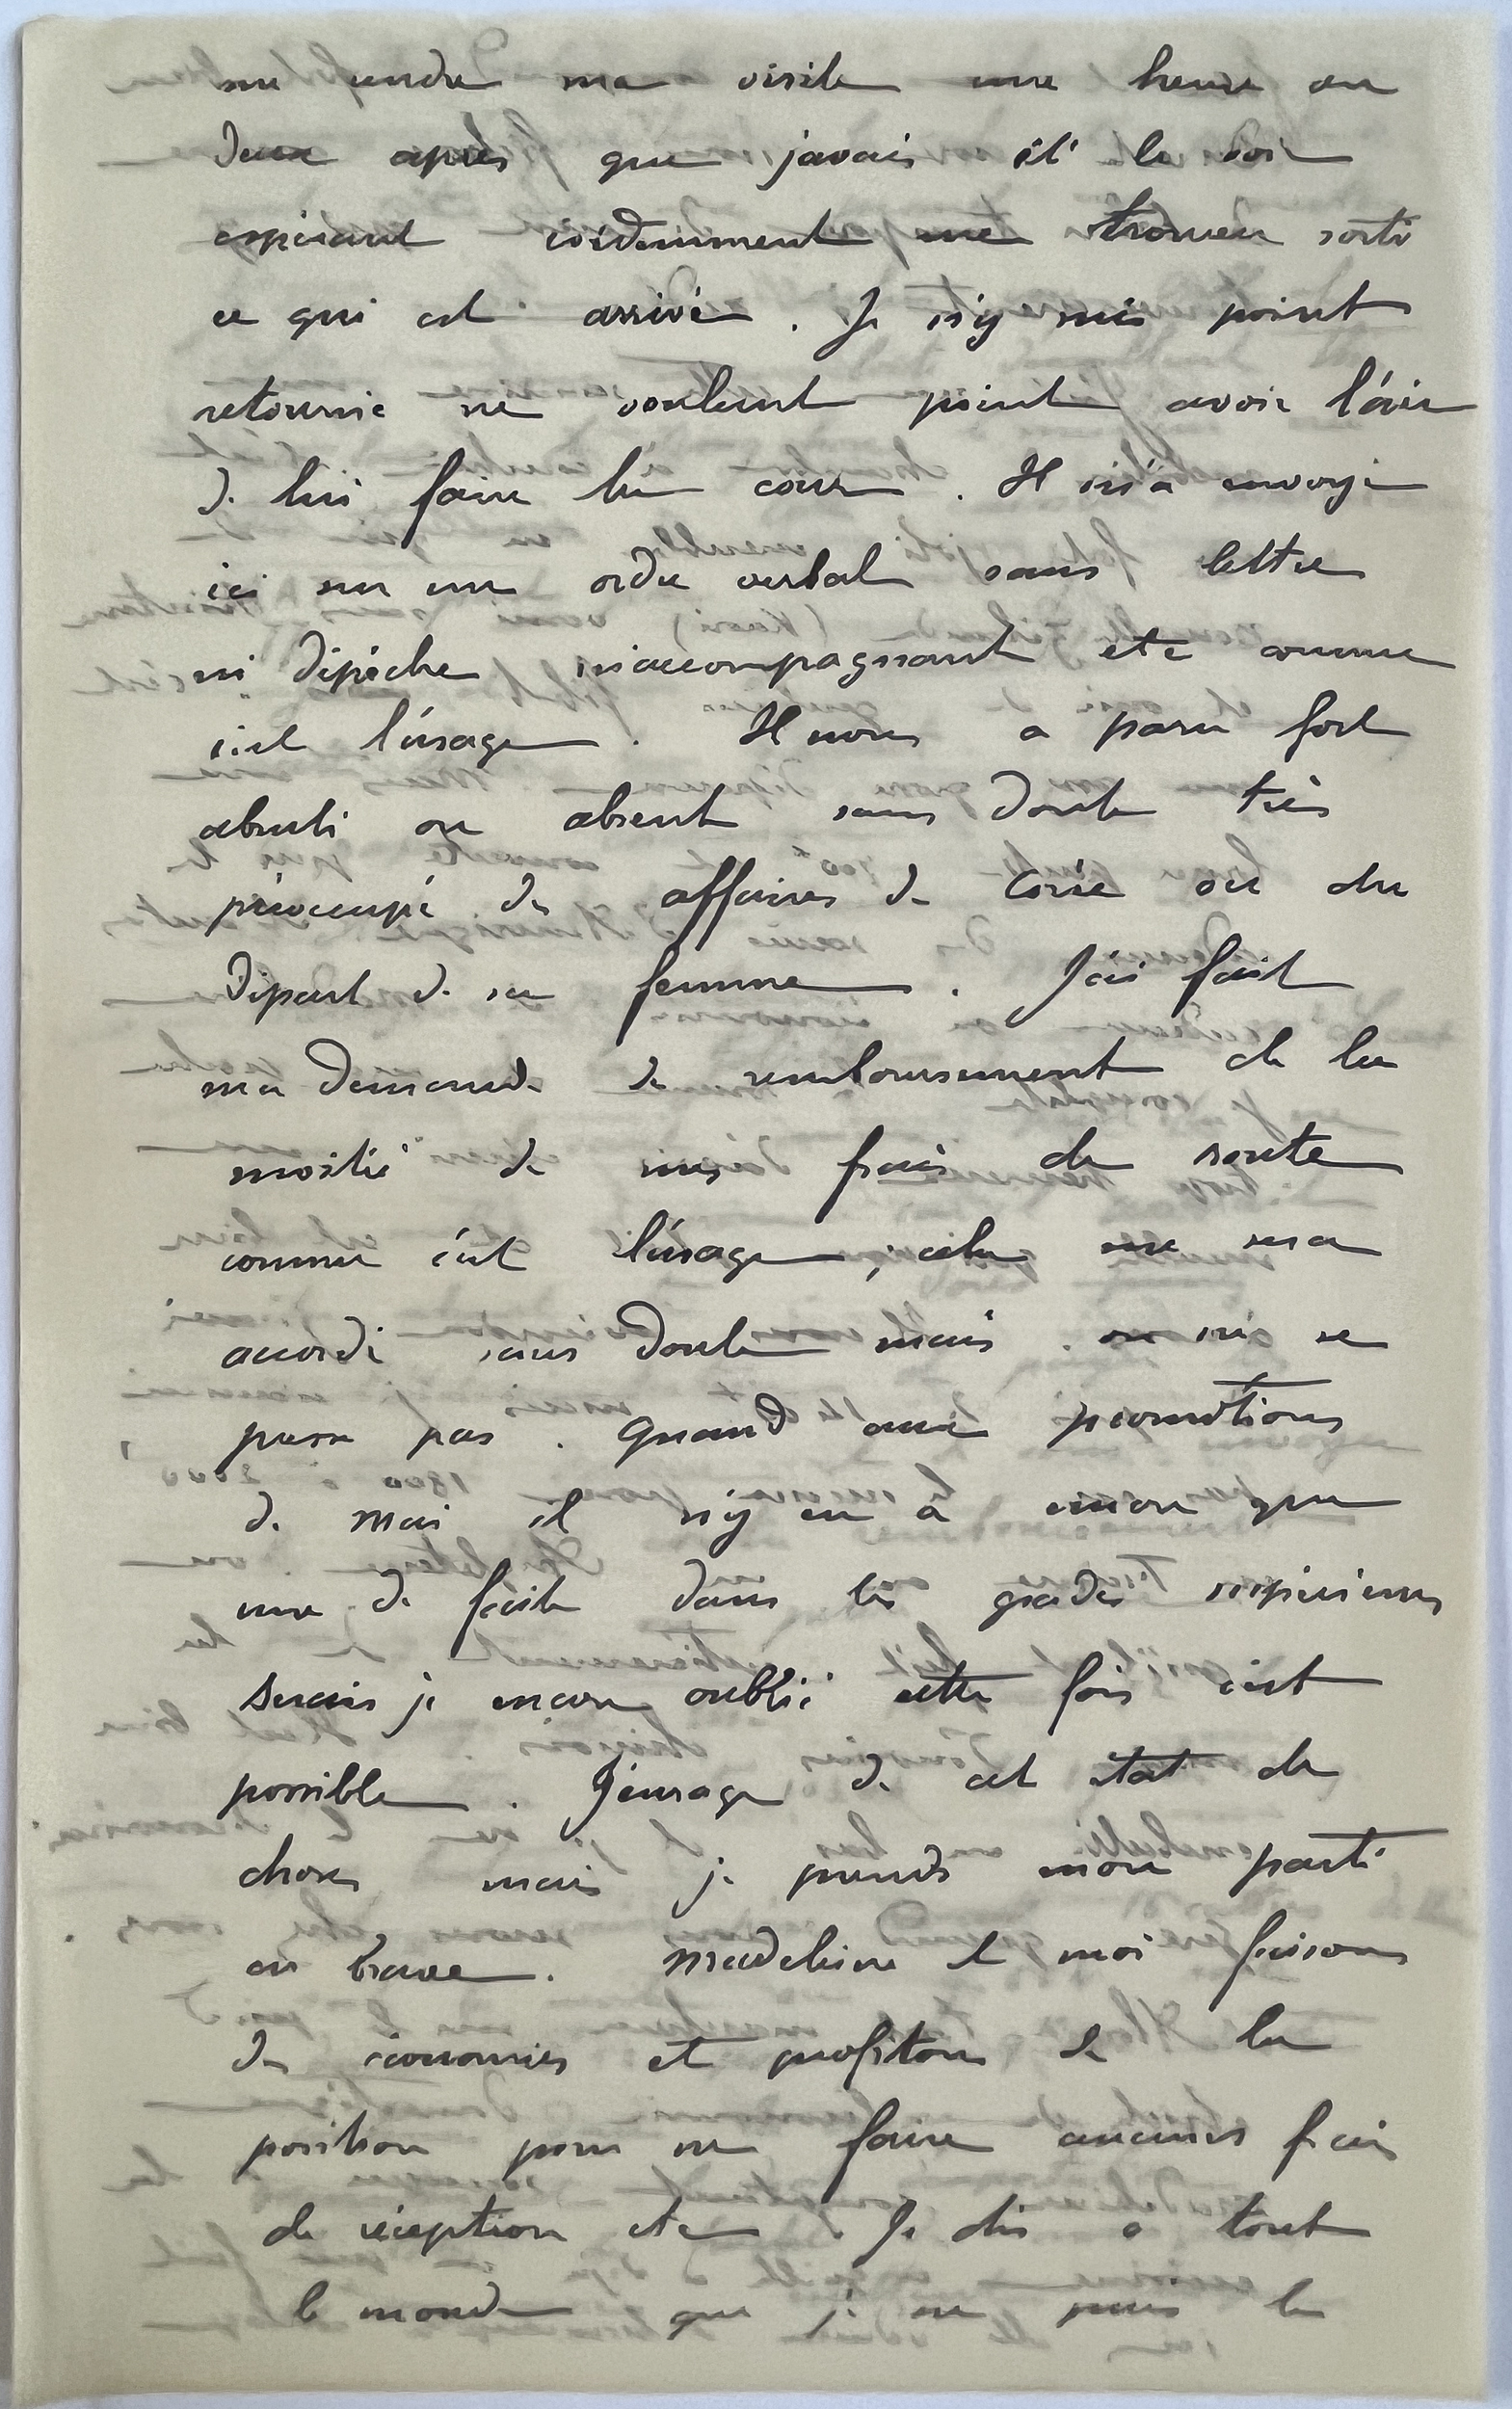 me rendre ma visite une heure ou
deux après que j'avais été le voir
espérant évidemment me trouver sorti
ce qui est arrivé. Je n'y suis point
retourné ne voulant point avoir l'air
de lui faire la cour. Il m'a envoyé
ici sur un ordre verbal sans lettre
ni dépêche m'accompagnant etc comme
c'est l'usage. Il nous a paru fort
abruti ou absent sans doute très
préoccupé des affaires de Corée ou du
départ de sa femme. J'ai fait
ma demande de remboursement de la
moitié de mes frais de route
comme c'est l'usage ; cela me sera
accordé sans doute mais on ne se
presse pas. Quand aux promotions
de mai il n'y en a encore que
une de faite dans les grades supérieurs
serais je encore oublié cette fois c'est
possible. J'enrage de cet état de
choses mais je prends mon parti
en brave. Madeleine et moi faisons
des économies et profitons de la
position pour ne faire aucuns frais
de réception etc. Je dis à tout
le monde que je ne puis le